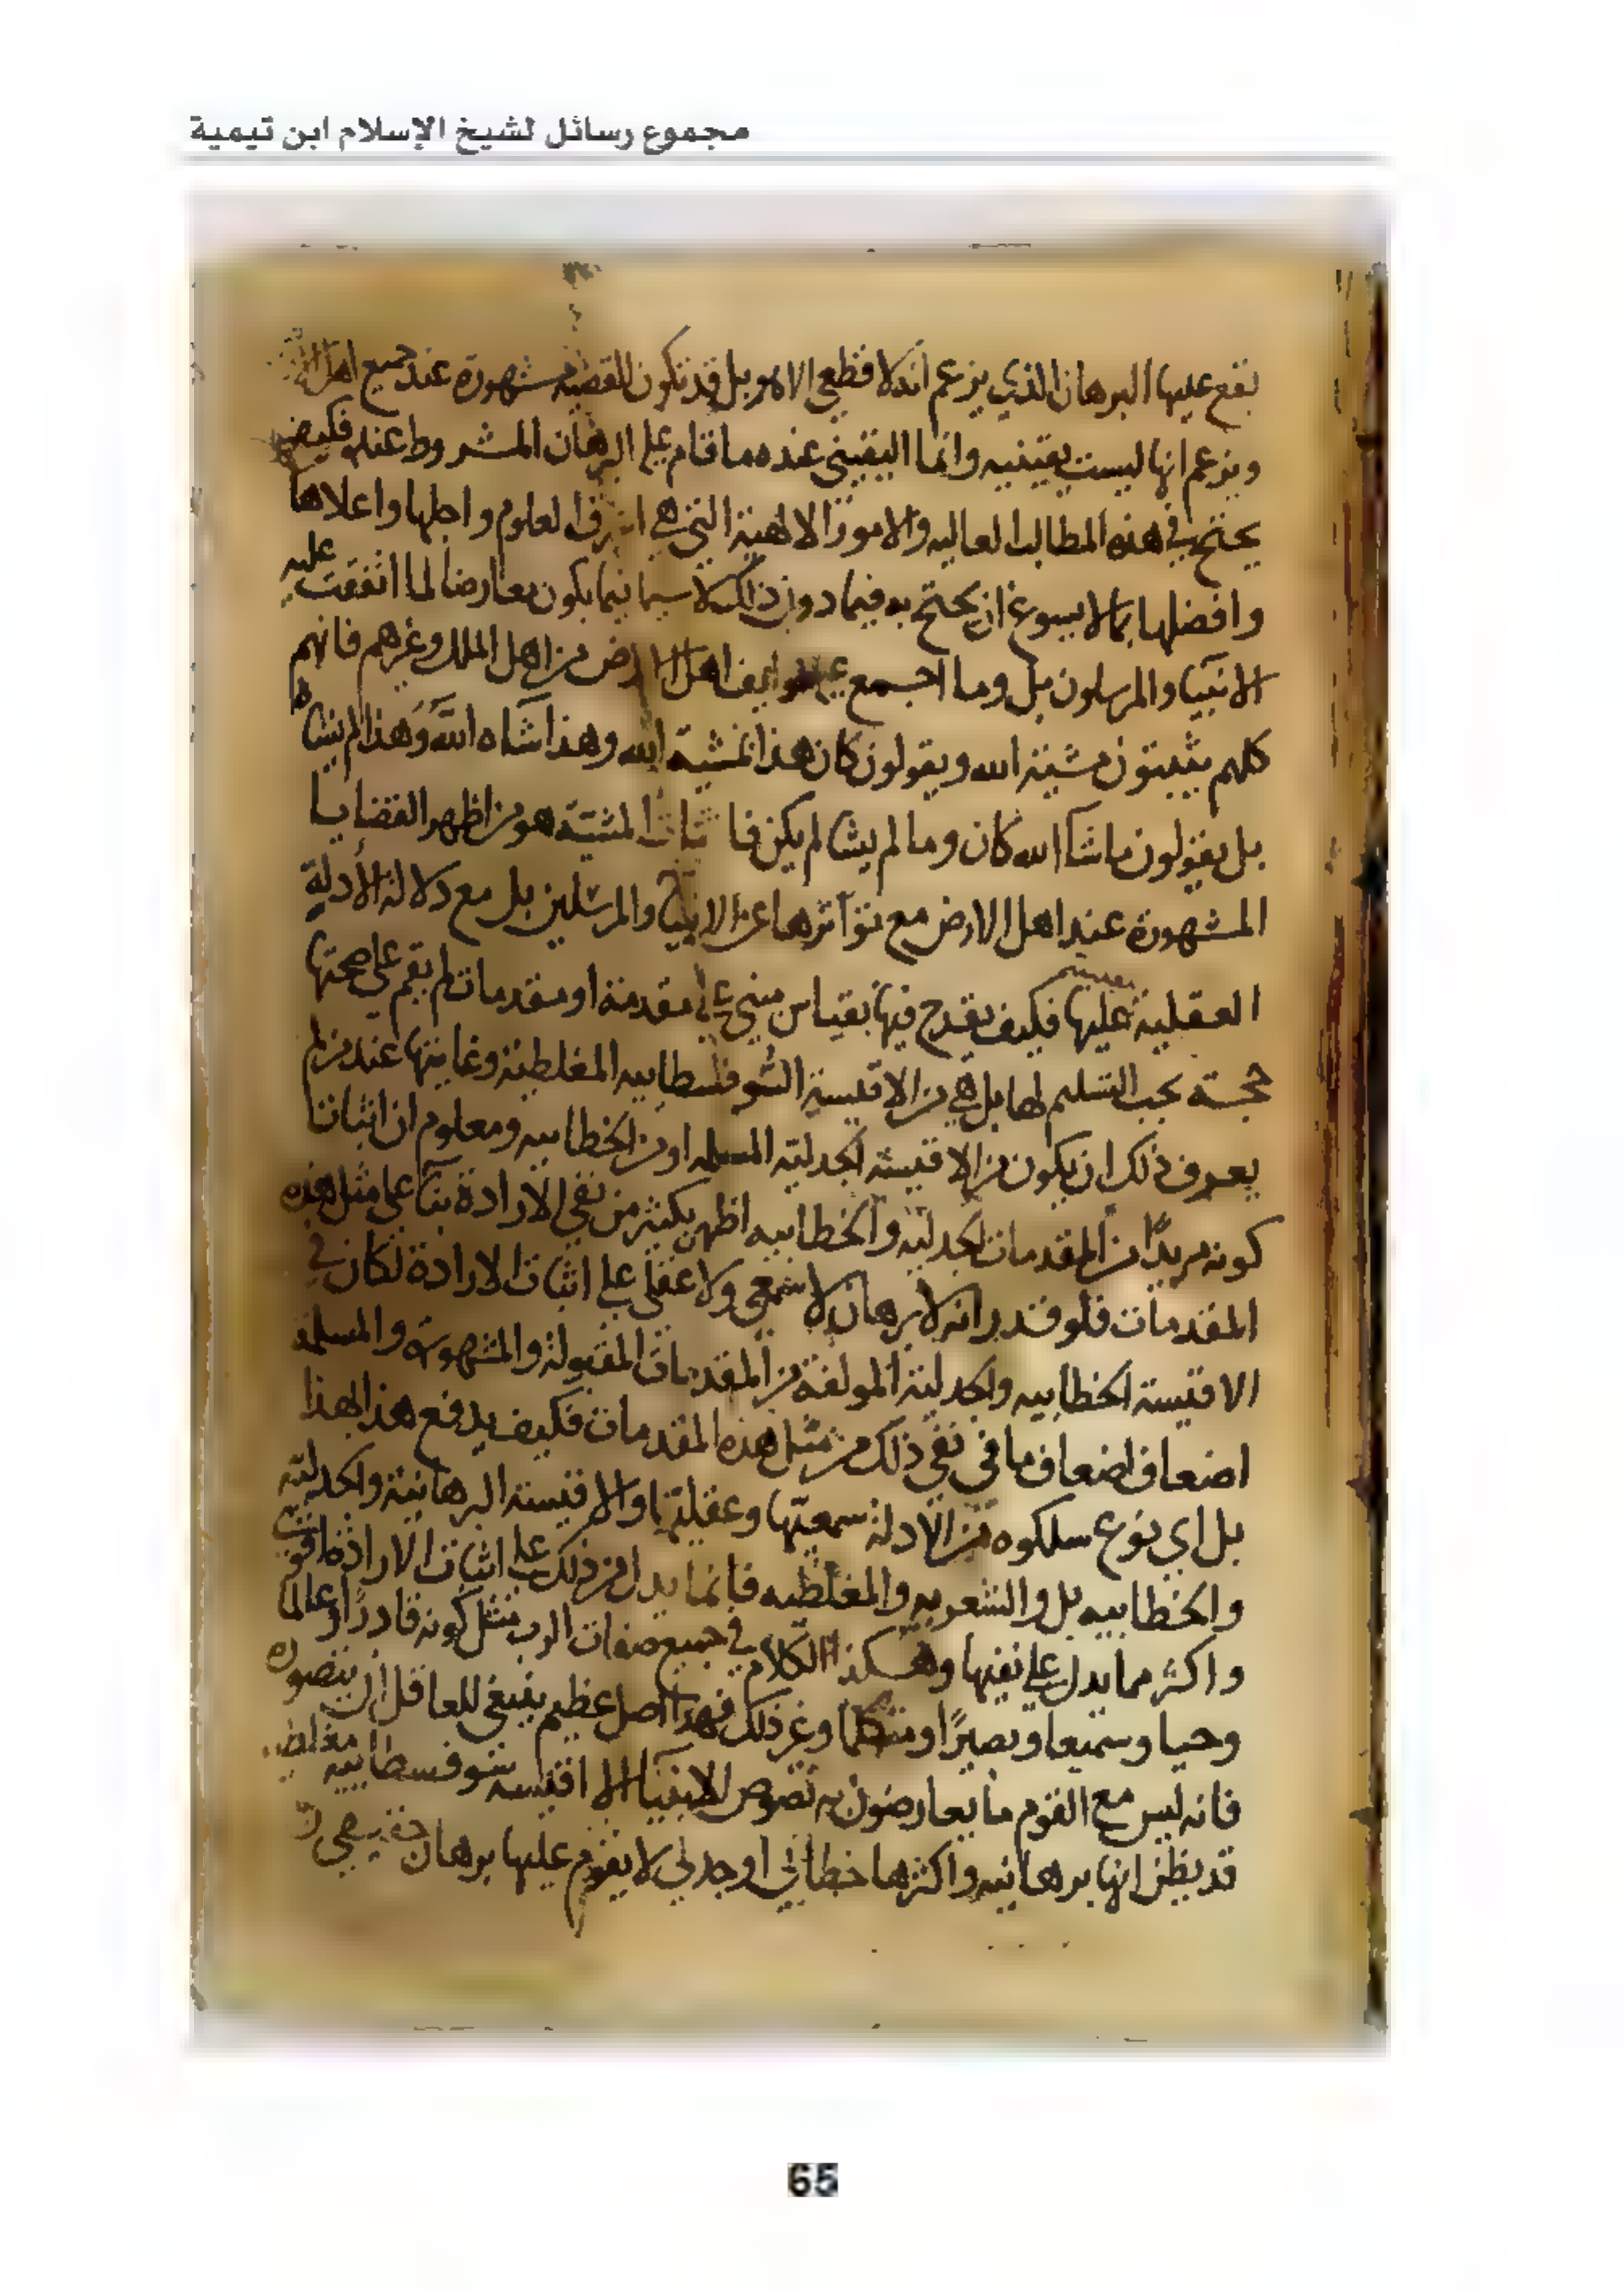 مجموع رسائل لشيخ الإسلام ابن تيمية
عليها البرهان الذي يزعم انه لا قطعي الا هو بل قد تكون القضيه مشهورة عند جميع اهل
ويزعم انها ليست يقينيه وانما اليقيني عنده ما قام على البرهان المشروط عنده فكيف
يحتج في هذه المطالب العاليه والامور الالهية التي هي اشرف العلوم واجلها واعلاها
وافضلها بما لا يسوغ ان يحتج به فيما دون ذلك لا سيما فيما يكون معارضا لما اتفقت عليه
الانبيآ والمرسلون بل وما اجمع عليه طوايف اهل الارض من اهل الملل وغيرهم فانهم
كلهم يثبتون مشيئة الله ويقولون كان هذا بمشية الله وهذا شآه الله وهذا لم يشاه
بل يقولون ما شآ الله كان وما لم يشا لم يكن فاثبات المشيئة هو من اظهر القضايا
المشهورة عند اهل الارض مع تواترها عن الانبيآ والمرسلين بل مع دلالة الأدلة
العقلية عليها فكيف يقدح فيها بقياس مبني على مقدمة او مقدمات لم يقم على صحتها
حجة يجب التسليم لها بل هي من الاقيسة السوفسطاييه المغلطية وغايتها عند من لم
يعرف ذلك ان يكون من الاقيسة الجدلية المسلمه او من الخطابيه ومعلوم ان اثباتنا
كونه مريدًا من المقدمات الجدلية والخطابيه اظهر بكثير من نفي الارادة بنآ على مثل هذه
المقدمات فلو قدر انه لا برهان لا سمعي ولا عقلي على اثبات الارادة لكان في
الاقيسة الخطابيه والجدلية المولفة من المقدمات المقبولة والمشهورة والمسلمة
اضعاف اضعاف ما في نفي ذلك من مثل هذه المقدمات فكيف يدفع هذا بهذا
بل اي نوع سلكوه من الادلة سمعيتها وعقليتها والاقيسة البرهانية والجدلية
والخطابيه بل والشعريه والمغلطيه فانما يدل من ذلك على اثبات الارادة اقوى
واكثر مما يدل على نفيها وهكذا الكلام في جميع صفات الرب مثل كونه قادرًا وعالما
وحيا وسميعا وبصيرًا ومتكلما وغير ذلك فهذا اصل عظيم ينبغي للعاقل ان يتصوره
فانه ليس مع القوم ما يعارضون به نصوص الانبيآ الا اقيسه سوفسطاييه مغلطيه
قد يظن انها برهانيه واكثرها خطابي او جدلي لا يقوم عليها برهان
65